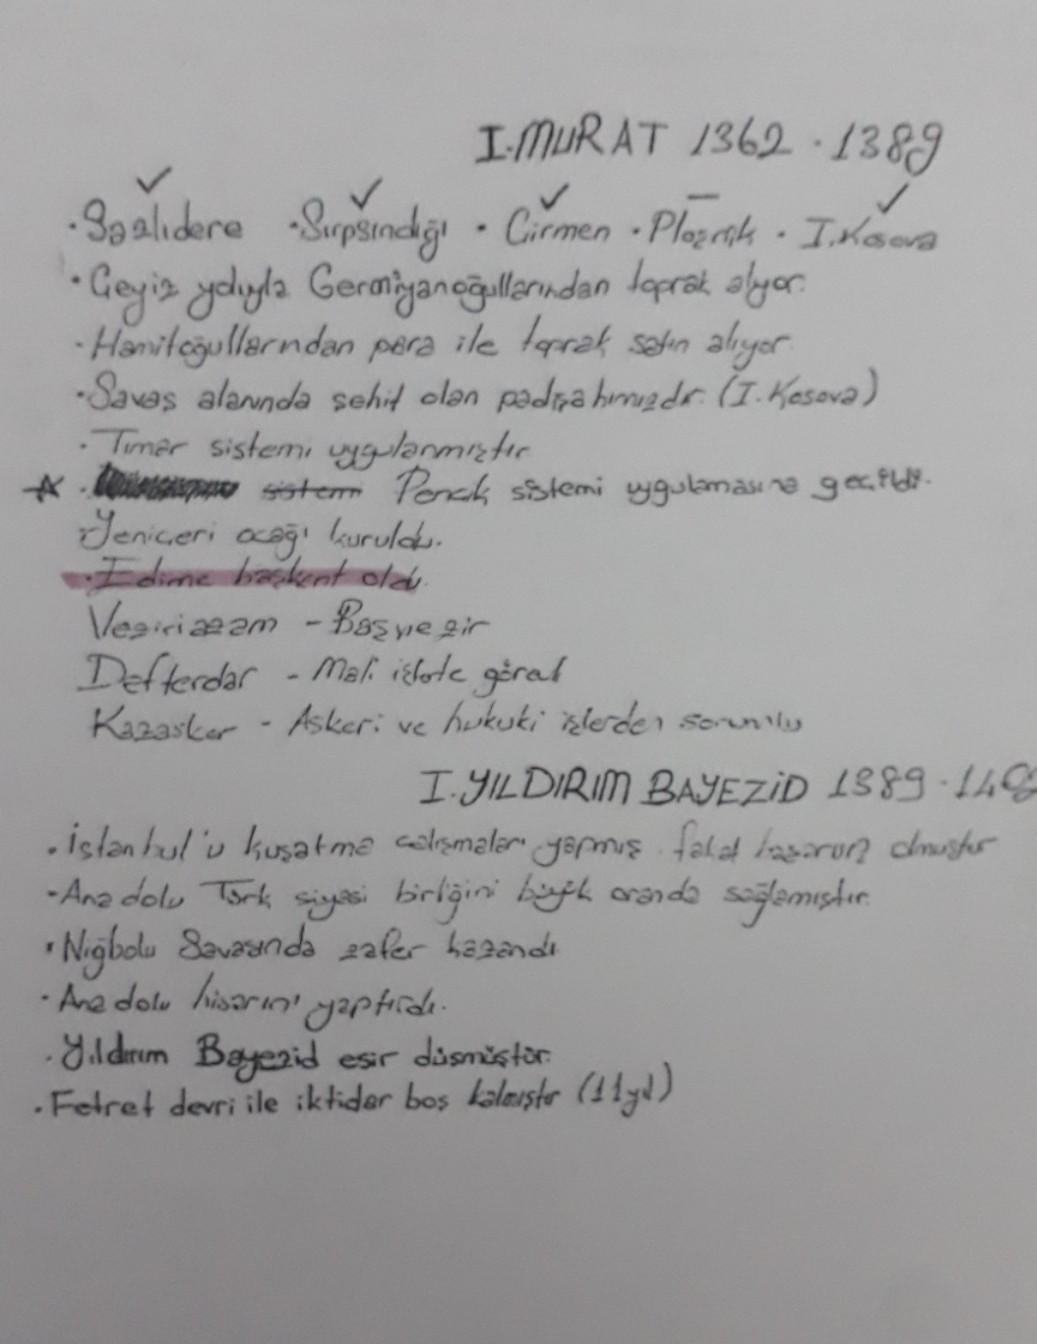 I.MURAT 1362 - 1389
✓ ✓ ✓ — ✓
· Sazlıdere · Sırpsındığı · Çirmen · Ploşnik · I.Kosova
· Çeyiz yoluyla Germiyanoğullarından toprak alıyor.
· Hamitoğullarından para ile toprak satın alıyor.
· Savaş alanında şehit olan padişahımızdır. (I. Kosova)
· Tımar sistemi uygulanmıştır
☆ · sistemi Pencik sistemi uygulamasına geçildi.
· Yeniçeri ocağı kuruldu.
· Edirne başkent oldu.
Veziriazam - Başvezir
Defterdar - Mali işlere
Kazasker - Askeri ve hukuki işlerden sorumlu
I.YILDIRIM BAYEZİD 1389 -
· İstanbul'u kuşatma çalışmaları yapmış fakat başarısız olmuştur
- Anadolu Türk siyasi birliğini büyük oranda sağlamıştır.
· Niğbolu Savaşında zafer kazandı
· Anadolu hisarını yaptırdı.
· Yıldırım Bayezid esir düşmüştür.
· Fetret devri ile iktidar boş kalmıştır (11 yıl)